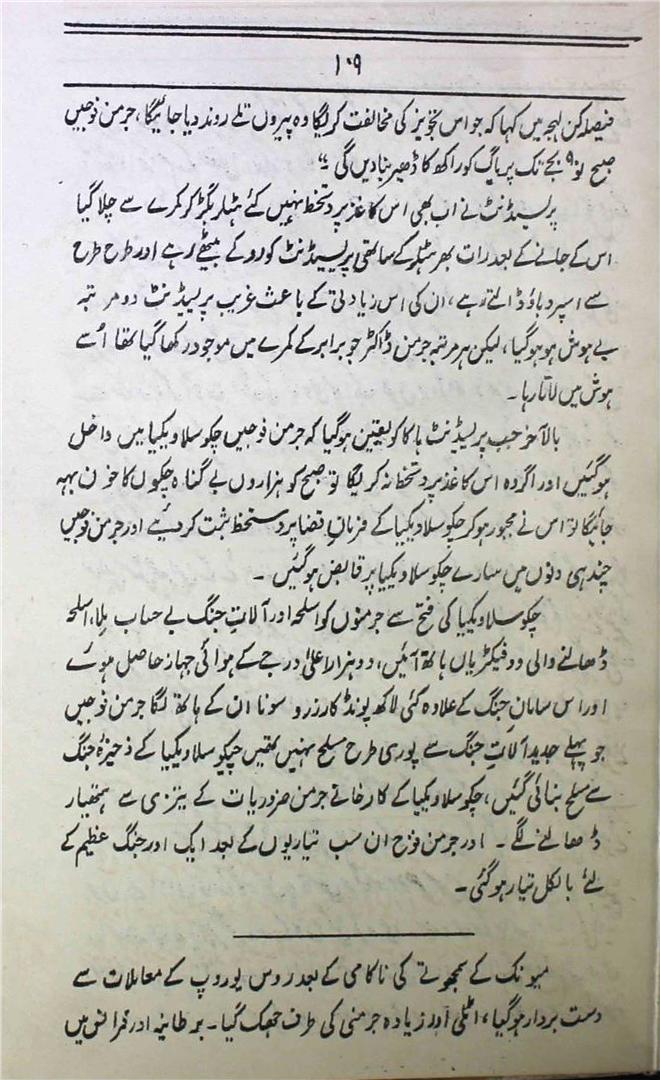 ۱۰۹
فیصلہ کن لہجہ میں کہا کہ جو اس تجویز کی مخالفت کریگا وہ پیروں تلے روند دیا جائیگا، جرمن فوجیں
صبح نو ۹ بجے تک پریاگ کو راکھ کا ڈھیر بنا دیں گی ”
پریسیڈنٹ نے اب بھی اس کاغذ پر دستخط نہیں کئے ہٹلر بگڑ کر کمرے سے چلا گیا
اس کے جانے کے بعد رات بھر ہٹلر کے ساتھی پریسیڈنٹ کو روکے بیٹھے رہے اور طرح طرح
سے اسپر دباؤ ڈالتے رہے، ان کی اس زیادتی کے باعث غریب پریسیڈنٹ دو مرتبہ
بے ہوش ہو ہو گیا، لیکن ہر مرتبہ جرمن ڈاکٹر جو برابر کے کمرے میں موجود رکھا گیا تھا اُسے
ہوش میں لاتا رہا۔
بالآخر جب پریسیڈنٹ ہاکا کو یقین ہوگیا کہ جرمن فوجیں چکوسلاویکیا میں داخل
ہوگئیں اور اگر وہ اس کاغذ پر دستخط نہ کریگا تو صبح کو ہزاروں بے گناہ چکوں کا خون بہہ
جائیگا تو اس نے مجبور ہوکر چکوسلاویکیا کے فرمانِ قضا پر دستخط ثبت کر دیئے اور جرمن فوجیں
چند ہی دنوں میں سارے چکوسلاویکیا پر قابض ہوگئیں۔
چکوسلاویکیا کی فتح سے جرمنوں کو اسلحہ اور آلاتِ جنگ بے حساب ملا، اسلحہ
ڈھالنے والی دو فیکٹریاں ہاتھ آئیں، دو ہزار اعلیٰ درجے کے ہوائی جہاز حاصل ہوئے
اور اس سامانِ جنگ کے علاوہ کئی لاکھ پونڈ کا زر و سونا ان کے ہاتھ لگا جرمن فوجیں
جو پہلے جدید آلاتِ جنگ سے پوری طرح مسلح نہیں تھیں چکوسلاویکیا کے ذخیرۂ جنگ
سے مسلح بنائی گئیں، چکوسلاویکیا کے کارخانے جرمن ضروریات کے تیزی سے ہتھیار
ڈھالنے لگے۔ اور جرمن فوج ان سب تیاریوں کے بعد ایک اور جنگ عظیم کے
لئے بالکل تیار ہوگئی۔
میونک کے سمجھوتے کی ناکامی کے بعد روس یوروپ کے معاملات سے
دست بردار ہوگیا، اٹلی اور زیادہ جرمنی کی طرف جھک گیا۔ برطانیہ اور فرانس میں